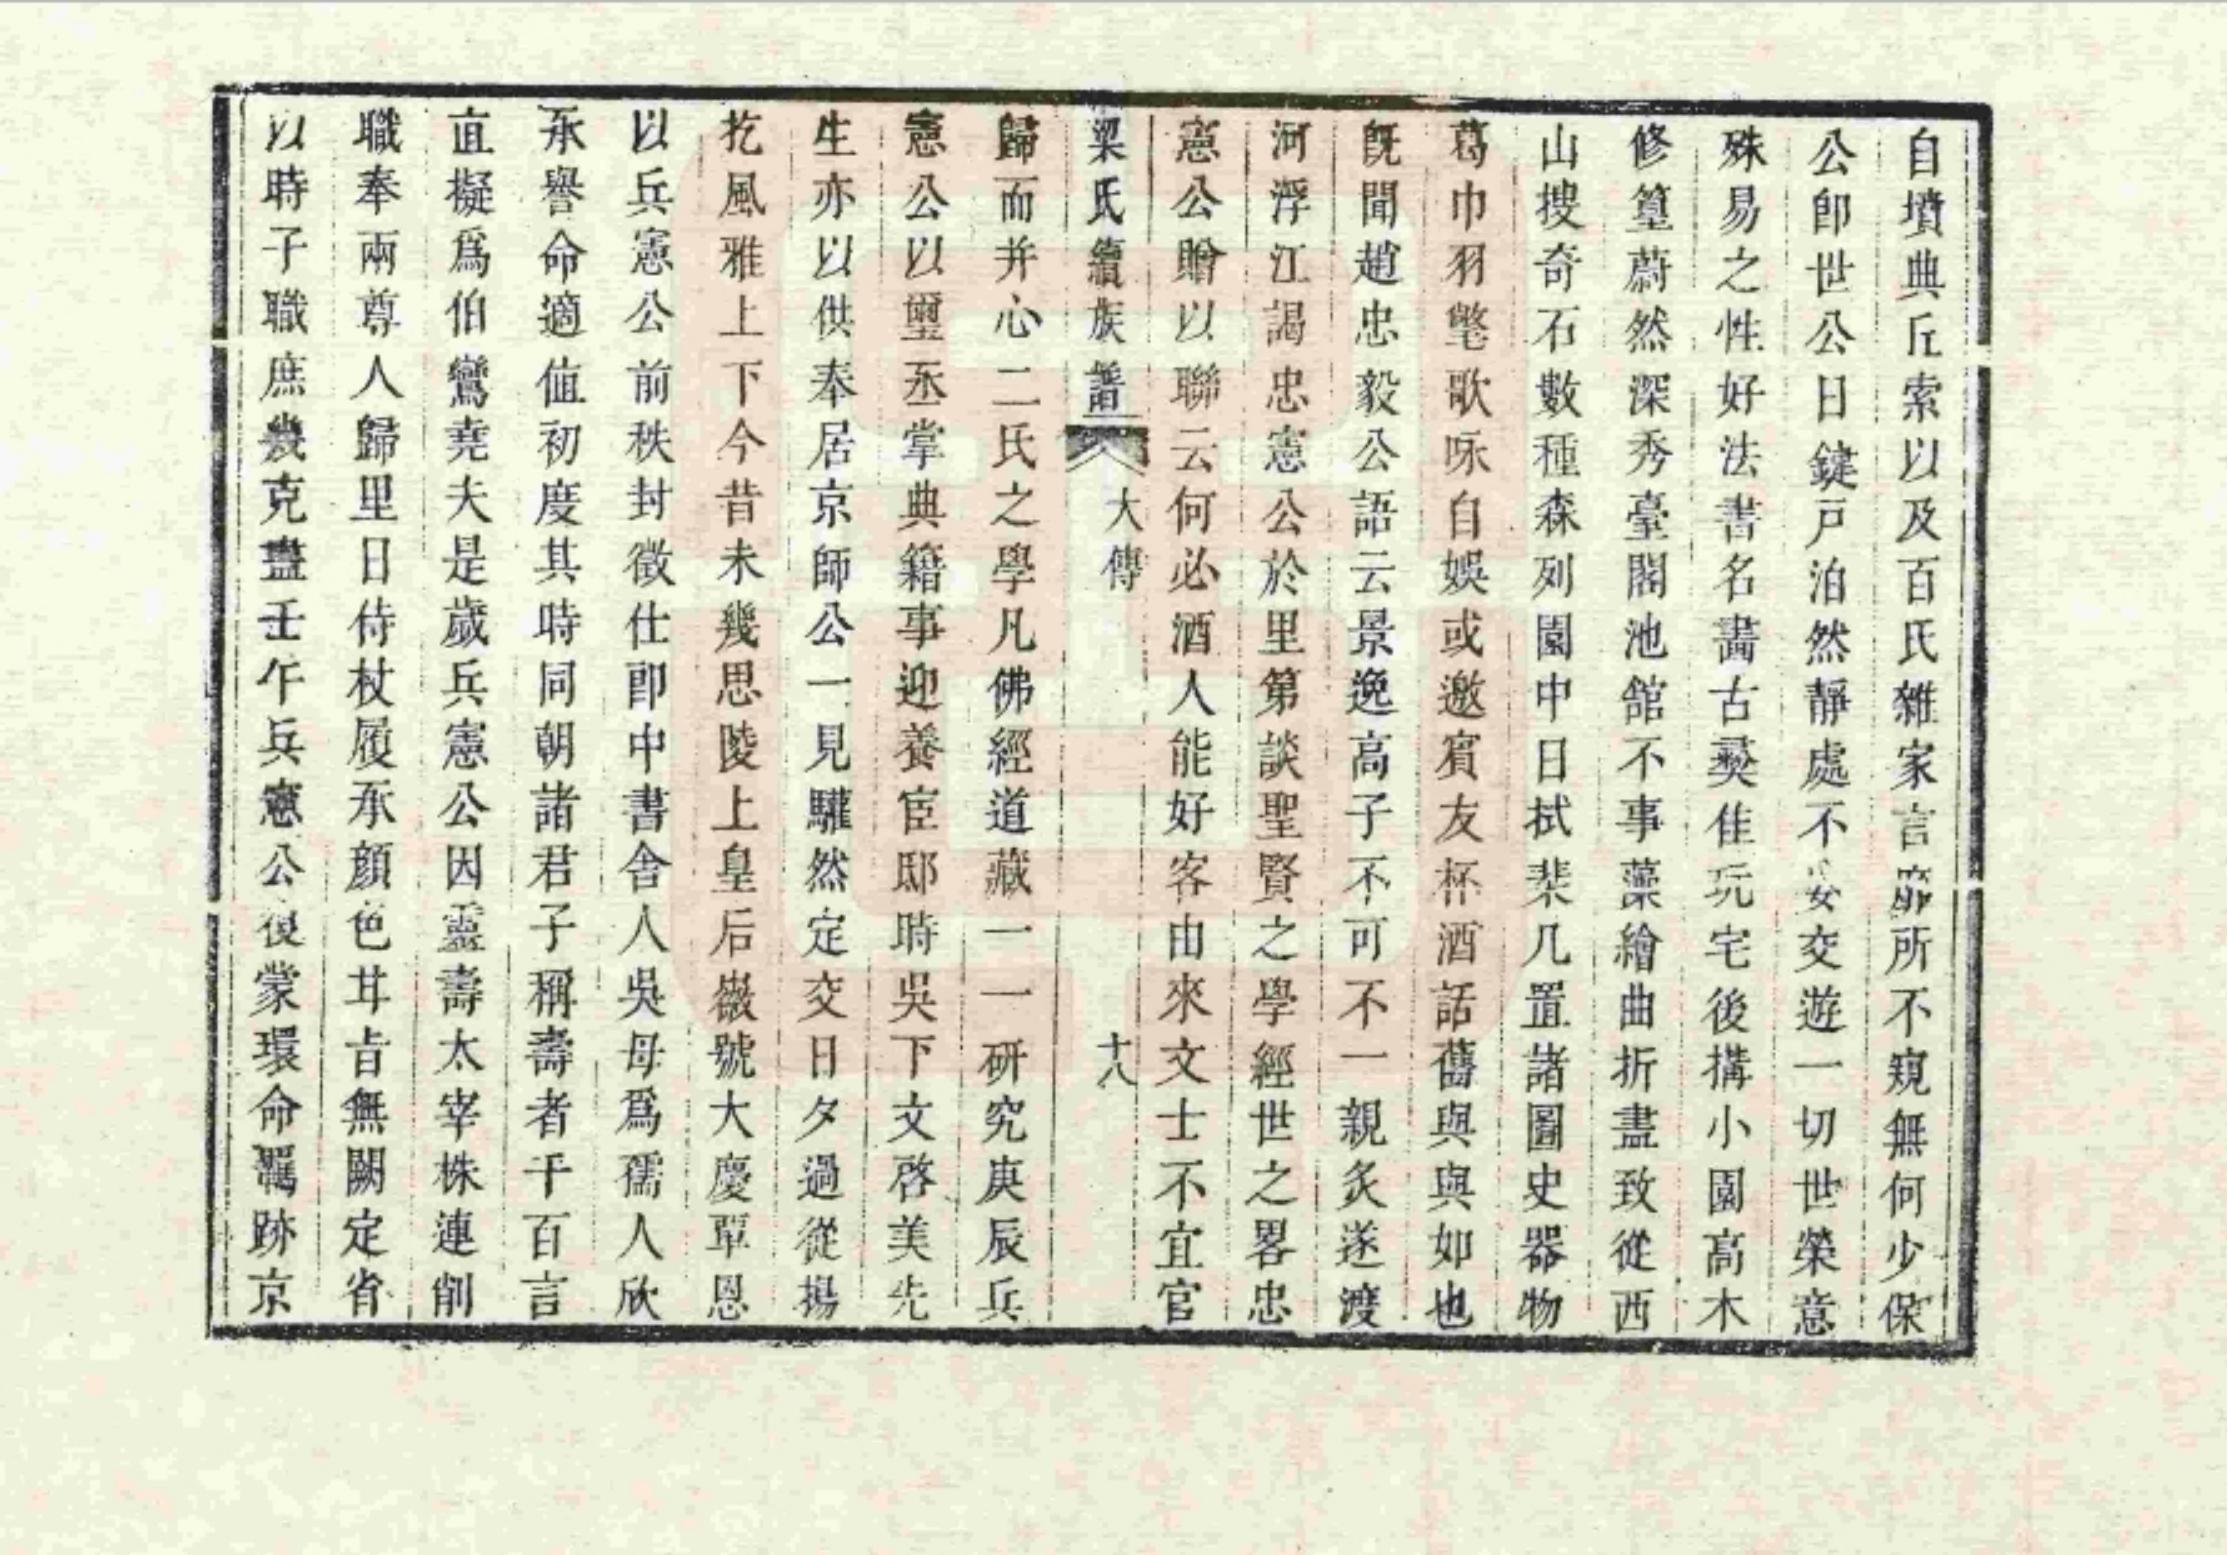 自墳典丘索以及百氏雜家言靡所不窺無何少保
公卽世公日鍵戸泊然靜處不妄交遊一切世榮意
殊易之性好法書名畵古彜佳玩宅後搆小園高木
修篁蔚然深秀臺閣池舘不事藻繪曲折盡致從西
山搜奇石數種森列園中日拭棐几置諸圖史器物
葛巾羽氅歌咏自娛或邀賓友杯酒話舊與與如也
旣聞趙忠毅公語云景逸高子不可不一親炙遂渡
河浮江謁忠憲公於里第談聖賢之學經世之畧忠
憲公贈以聯云何必酒人能好客由來文士不宜官
梁氏續族譜 大傳 十八
歸而并心二氏之學凡佛經道藏一一研究庚辰兵
憲公以璽丞掌典籍事迎養宦邸時吳下文啓美先
生亦以供奉居京師公一見驩然定交日夕過從揚
扢風雅上下今昔未幾思陵上皇后嶶號大慶覃恩
以兵憲公前秩封徵仕卽中書舍人吳母爲孺人欣
承譽命適值初度其時同朝諸君子稱壽者千百言
直擬爲伯鸞堯夫是歲兵憲公因靈壽太宰株連削
職奉兩尊人歸里日侍杖履承顔色甘旨無闕定省
以時子職庶幾克盡壬午兵憲公復蒙環命羈跡京